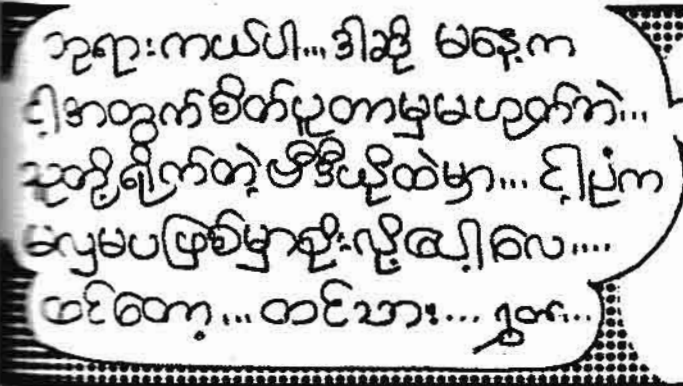 ဘုရားကယ်ပါ...ဒါဆို မနေ့က
ငါ့အတွက်စိတ်ပူတာမှမဟုတ်ဘဲ...
သူတို့ရိုက်တဲ့ဗီဒီယိုထဲမှာ... ငါ့ပုံက
မလှမပဖြစ်မှာစိုးလို့ပေါ့လေ....
ဟင်တော့... တင်သား... ရွှတ်...